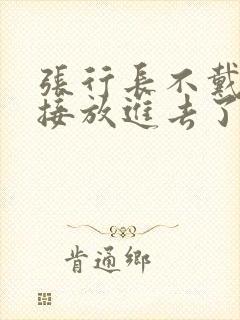 張行長不戴
接放進去了
肯通鄉